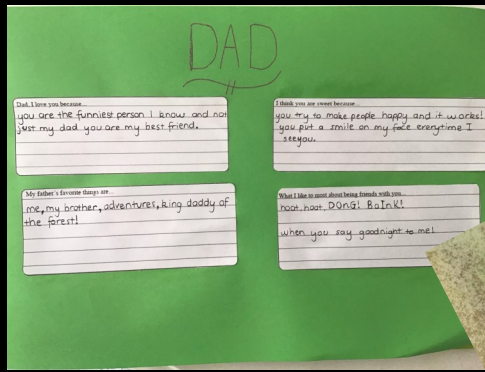 DAD
Dad, I love you because...
you are the funniest person I know and not
just my dad you are my best friend.
I think you are sweet because...
you try to make people happy and it works!
you put a smile on my face everytime I
seeyou.
My father's favorite things are...
me, my brother, adventures, being daddy of
the forest!
What I like to most about being friends with you...
hoot, hoot, DOnG! BoInK!
when you say goodnight to me!